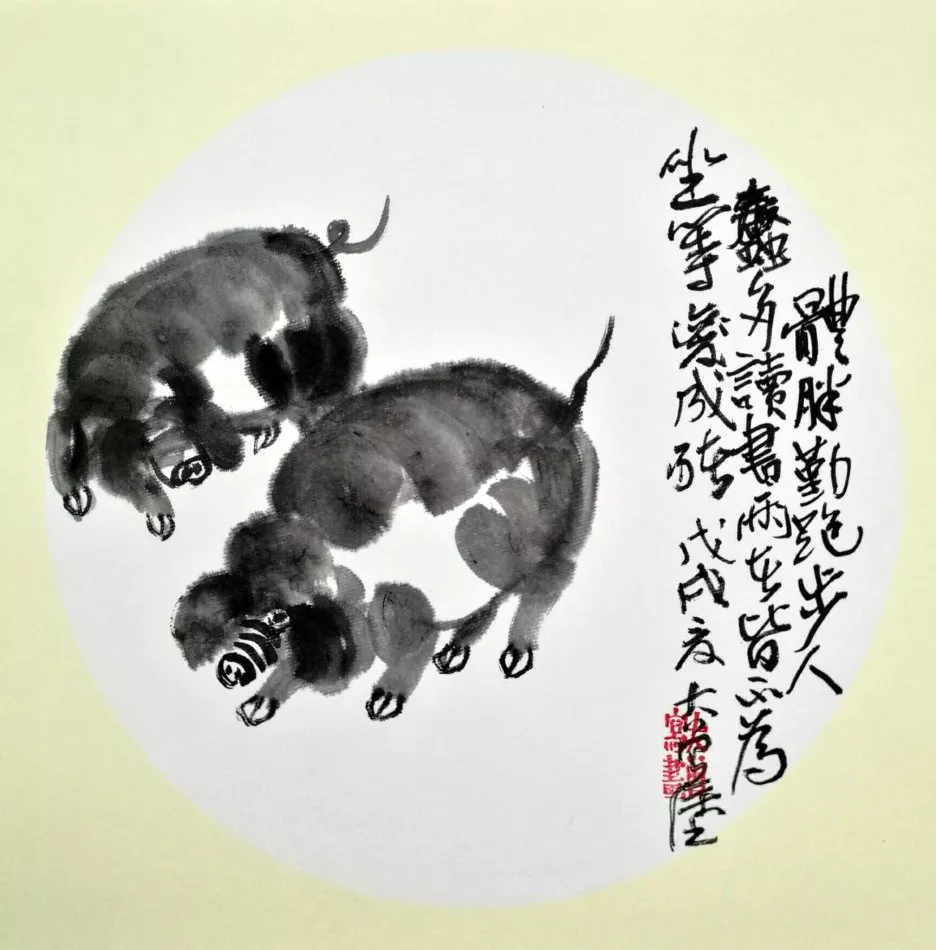 體胖勤跑步人
蠢多讀書兩者皆不為
坐等變成豬 戊戌夏